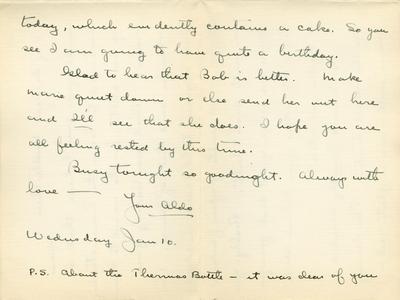 today, which evidently contains a cake. So you
see I am going to have quite a birthday.
Glad to hear that Bob is better. Make
Marie quiet down or else send her out here
and I'll see that she does. I hope you are
all feeling rested by this time.
Busy tonight so goodnight. Always with
love —
Your Aldo
Wednesday Jan 10.
P.S. About the Thermos Bottle — it was dear of you